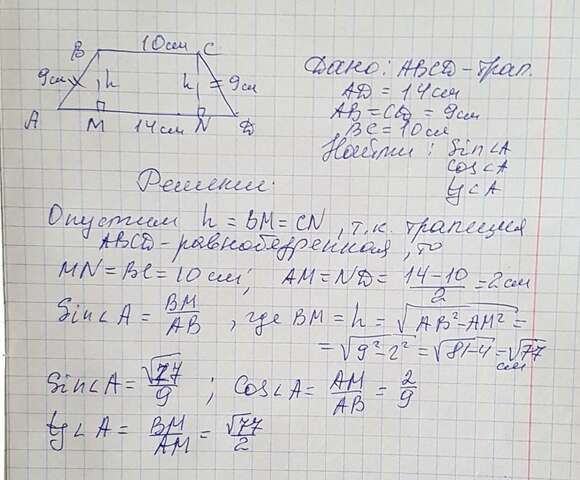 B 10см C
9см h h 9см
A M 14см N D
Дано: ABCD-трап.
AD = 14см
AB = CD = 9см
BC = 10см
Найти: Sin∠A
cos∠A
tg∠A
Решение:
Опустим h = BM = CN, т.к. трапеция
ABCD - равнобедренная, то
MN = BC = 10см; AM = ND = (14-10)/2 = 2см
Sin∠A = BM/AB, где BM = h = √(AB²-AM²) =
= √(9²-2²) = √(81-4) = √77 см
Sin∠A = √77/9; Cos∠A = AM/AB = 2/9
tg∠A = BM/AM = √77/2